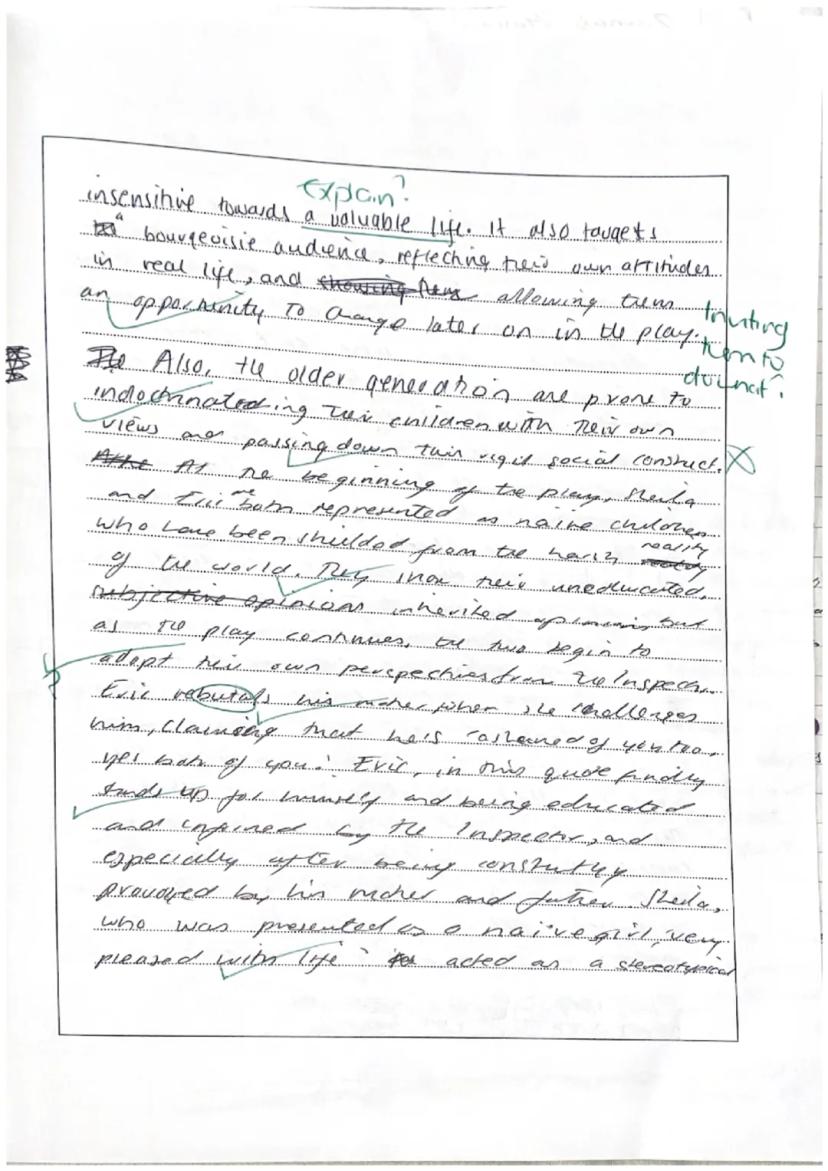 Explain?
insensitive towards a valuable life. It also targets
a bourgeoisie audience, reflecting their own attitudes
in real life, and allowing them
an opportunity to change later on in the play.
inviting
them to
do what?
Also, the older generation are prone to
indoctrinateding their children with their own
views and passing down their social construct.
At the beginning of the play, Sheila
and Eric are both represented as naive children
who have been shielded from the harsh reality
of the world. They show their uneducated,
subjective opinions inherited opinions, but
as the play continues, the two begin to
adopt their own perspectives from the Inspector.
Eric rebutals his mother, when she challenges
him, claiming that he is 'ashamed of you too,
yes both of you'. Eric, in this quote finally
stands up for himself and being educated
and by the Inspector, and
especially after being constantly
provoked by his mother and father. Sheila,
who was presented as a naive girl, 'very
pleased with life' acted as a stereotypical